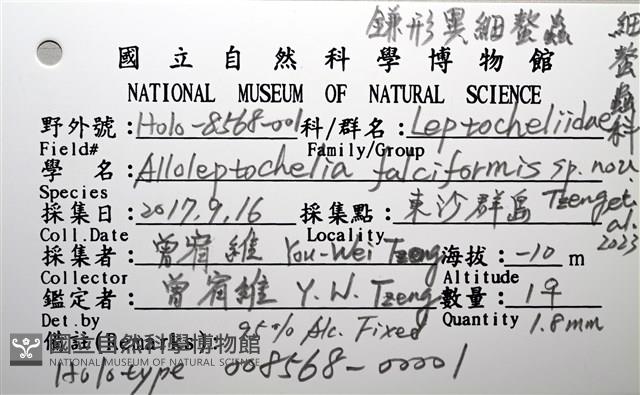 鎌形異細螯蟲 細螯蟲科
國立自然科學博物館
NATIONAL MUSEUM OF NATURAL SCIENCE
野外號：Holo-8568-001 科/群名：Leptocheliidae
Field# Family/Group
學 名：Alloleptochelia falciformis sp. nov.
Species Tzeng et. al. 2023
採集日：2017.9.16 採集點：東沙群島
Coll.Date Locality
採集者：曾宥維 You-Wei Tzeng 海拔：-10 m
Collector Altitude
鑑定者：曾宥維 Y. W. Tzeng 數量：1♀
Det.by Quantity 1.8mm
備註(Remarks)：95% Alc. Fixed
國立自然科學博物館
NATIONAL MUSEUM OF NATURAL SCIENCE
Holotype 008568-00001